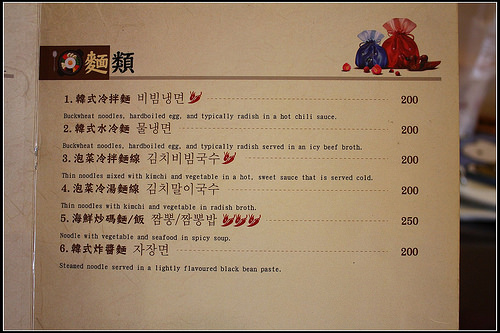 麵類
1. 韓式冷拌麵 비빔냉면 200
Buckwheat noodles, hardboiled egg, and typically radish in a hot chili sauce.
2. 韓式水冷麵 물냉면 200
Buckwheat noodles, hardboiled egg, and typically radish served in an icy beef broth.
3. 泡菜冷拌麵線 김치비빔국수 200
Thin noodles mixed with kimchi and vegetable in a hot, sweet sauce that is served cold.
4. 泡菜冷湯麵線 김치말이국수 200
Thin noodles with kimchi and vegetable in radish broth.
5. 海鮮炒碼麵/飯 짬뽕/짬뽕밥 250
Noodle with vegetable and seafood in spicy soup.
6. 韓式炸醬麵 자장면 200
Steamed noodle served in a lightly flavoured black bean paste.